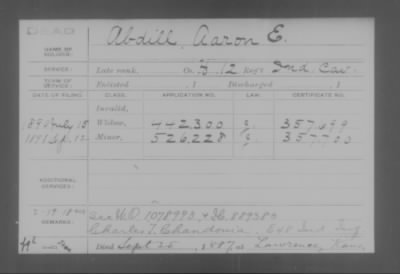 DEAD
NAME OF SOLDIER:
Abdill, Aaron E.
SERVICE:
Late rank, Co. H, 12 Reg't Ind. Cav.
TERM OF SERVICE:
Enlisted , 1 Discharged , 1
DATE OF FILING. CLASS. APPLICATION NO. LAW. CERTIFICATE NO.
Invalid,
July 15 Widow, 442,300 357,699
1891 Sep. 12 Minor, 526,228 357,700
ADDITIONAL SERVICES:
REMARKS:
See W.O. 1078993 + 889380
Charles T. Chandonia, Ind Inf
Died Sept 25, 1887, at Lawrence, Kans.